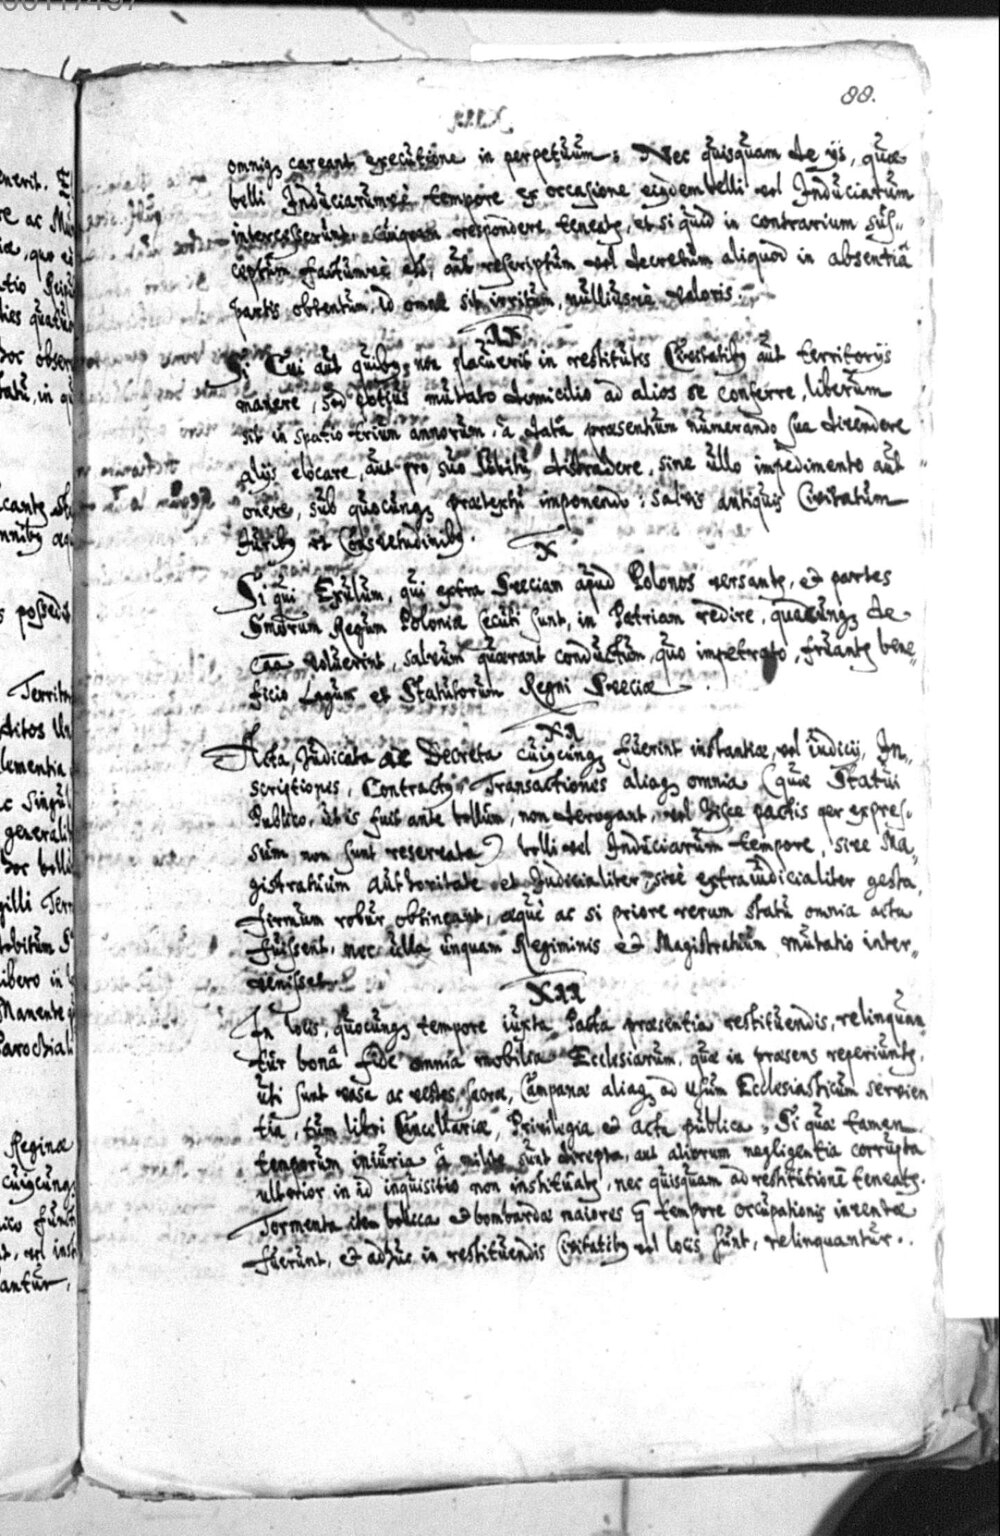 88.
omniq; careant executione in perpetuum: Nec quisquam de ijs, quæ
belli Induciarumvè tempore ex occasione eiusdem belli vel Induciarum
intercesserunt, cuiquam respondere teneatr, et si quid in contrarium sus-
ceptum factumvè est, aut rescriptum vel decretum aliquod in absentiâ
partis obtentum, id omne sit irritum, nulliusvè valoris.
IX
Si Cui aut quibq; non placuerit in restitutis Civitatibq aut territorijs
manere, sed potius mutato domicilio ad alios se conferre, liberum
sit in spatio trium annorum, a data præsentium numerando sua vendere
alijs elocare, aut pro suo libitu distrahere, sine ullo impedimento aut
onere, sub quocunq; prætextu imponendo: salvis antiquis Civitatum
Juribq et Consvetudinibq.
X
Si qui Exulum, qui extra Sveciam apud Polonos versantr, et partes
Smorum Regum Poloniæ secuti sunt, in Patriam redire, quacunq; de
Caâ voluerint, salvum quærant conductum, quo impetrato, fruantr bene-
ficio Legum et Statutorum Regni Sveciæ.
XI
Acta, Judicata ac Decreta cuiuscunq; fuerint instantiæ, vel iudicij, In-
scriptiones, Contractq, Transactiones aliaq; omnia (quæ Statui
Publico, ut is fuit ante bellum, non derogant, vel hisce pactis per expres-
sum non sunt reservata) belli vel Induciarum tempore, sive Ma-
gistratuum authoritate et Judicialiter, sive extraiudicialiter gesta,
firmum robur obtineant, æquè ac si priore rerum statu omnia acta
fuissent, nec ulla unquam Regiminis et Magistratuum mutatio inter-
venisset.
XII
In locis, quocunq; tempore iuxta Pacta præsentia restituendis, relinquan
tur bonâ fide omnia mobilia Ecclesiarum, quæ in præsens reperiuntr,
uti sunt vasa ac vestes sacræ, Campanæ aliaq; ad usum Ecclesiasticum servien
tia, tum libri Cancellariæ, Privilegia et acta publica, Si quæ tamen
temporum iniuria â milite sunt direpta, aut aliorum negligentia corrupta
ulterior in id inquisitio non instituatr, nec quisquam ad restitutionē teneatr.
Tormenta item bellica et bombardæ maiores q tempore occupationis inventæ
fuerunt, et adhuc in restituendis Civitatibq vel locis sunt, relinquantur.